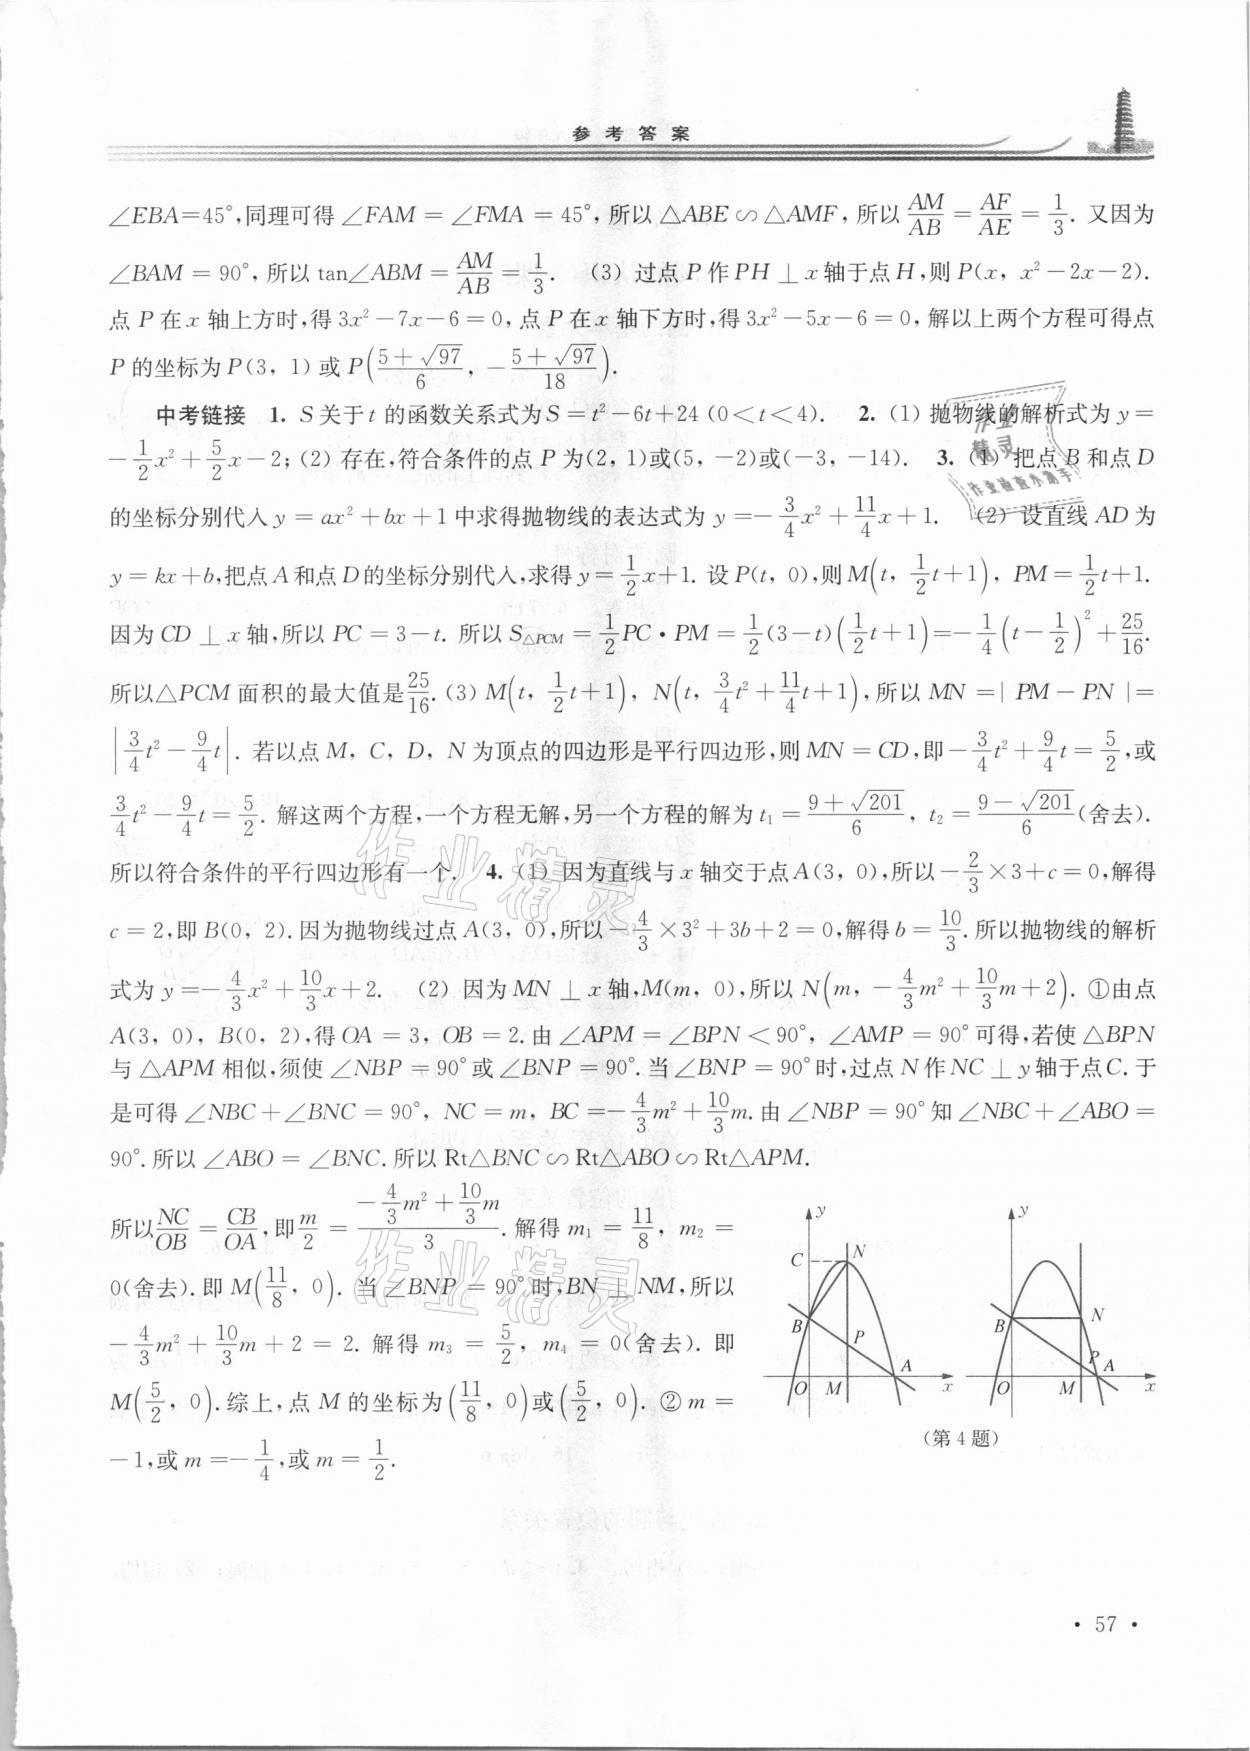 参考答案
∠EBA=45°,同理可得 ∠FAM = ∠FMA = 45°, 所以 △ABE ∽ △AMF, 所以 AM/AB = AF/AE = 1/3. 又因为
∠BAM = 90°, 所以 tan∠ABM = AM/AB = 1/3. (3) 过点 P 作 PH ⊥ x 轴于点 H, 则 P(x, x²-2x-2).
点 P 在 x 轴上方时,得 3x²-7x-6=0, 点 P 在 x 轴下方时,得 3x²-5x-6=0, 解以上两个方程可得点
P 的坐标为 P(3, 1) 或 P((5+√97)/6, -(5+√97)/18).
中考链接 1. S 关于 t 的函数关系式为 S = t²-6t+24 (0<t<4). 2. (1) 抛物线的解析式为 y =
-1/2x²+5/2x-2; (2) 存在,符合条件的点 P 为(2, 1)或(5, -2)或(-3, -14). 3. (1) 把点 B 和点 D
的坐标分别代入 y = ax²+bx+1 中求得抛物线的表达式为 y =-3/4x²+11/4x+1. (2) 设直线 AD 为
y = kx+b,把点 A 和点 D 的坐标分别代入,求得 y=1/2x+1. 设 P(t, 0),则 M(t, 1/2t+1), PM=1/2t+1.
因为 CD ⊥ x 轴,所以 PC = 3-t. 所以 S△PCM = 1/2PC·PM = 1/2(3-t)(1/2t+1)=-1/4(t-1/2)²+25/16.
所以△PCM 面积的最大值是25/16. (3) M(t, 1/2t+1), N(t, 3/4t²+11/4t+1), 所以 MN =| PM-PN |=
|3/4t²-9/4t|. 若以点 M, C, D, N 为顶点的四边形是平行四边形,则 MN = CD,即-3/4t²+9/4t=5/2,或
3/4t²-9/4t=5/2. 解这两个方程,一个方程无解,另一个方程的解为 t₁=(9+√201)/6, t₂=(9-√201)/6(舍去).
所以符合条件的平行四边形有一个. 4. (1) 因为直线与 x 轴交于点 A(3, 0),所以-2/3×3+c=0,解得
c = 2,即 B(0, 2). 因为抛物线过点 A(3, 0),所以-4/3×3²+3b+2=0,解得 b=10/3. 所以抛物线的解析
式为 y=-4/3x²+10/3x+2. (2) 因为 MN ⊥ x 轴,M(m, 0),所以 N(m, -4/3m²+10/3m+2). ①由点
A(3, 0), B(0, 2),得 OA = 3, OB = 2. 由 ∠APM = ∠BPN < 90°, ∠AMP = 90°可得,若使 △BPN
与 △APM 相似,须使 ∠NBP = 90°或 ∠BNP = 90°. 当 ∠BNP = 90°时,过点 N 作 NC ⊥ y 轴于点 C. 于
是可得 ∠NBC+∠BNC = 90°, NC = m, BC =-4/3m²+10/3m. 由 ∠NBP = 90°知 ∠NBC+∠ABO =
90°. 所以 ∠ABO = ∠BNC. 所以 Rt△BNC ∽ Rt△ABO ∽ Rt△APM.
所以NC/OB = CB/OA,即m/2 = (-4/3m²+10/3m)/3. 解得 m₁ = 11/8, m₂ =
0(舍去). 即 M(11/8, 0). 当 ∠BNP = 90°时,BN ⊥ NM,所以
-4/3m²+10/3m+2 = 2. 解得 m₃ = 5/2, m₄ = 0(舍去). 即
M(5/2, 0). 综上,点 M 的坐标为(11/8, 0)或(5/2, 0). ② m =
-1,或 m =-1/4,或 m = 1/2.
y
C N
B
P
A
O M x
y
B N
P A
O M x
(第 4 题)
作业精灵
作业精灵
作业
精灵
· 57 ·